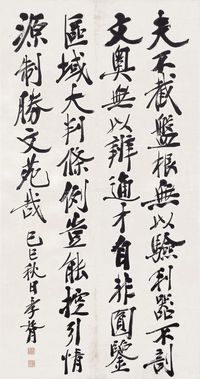 夫不截盤根無以驗利器不剖
文奧無以辨通才自非圓鑒
區域大判條例豈能控引情
源制勝文苑哉 己巳秋日